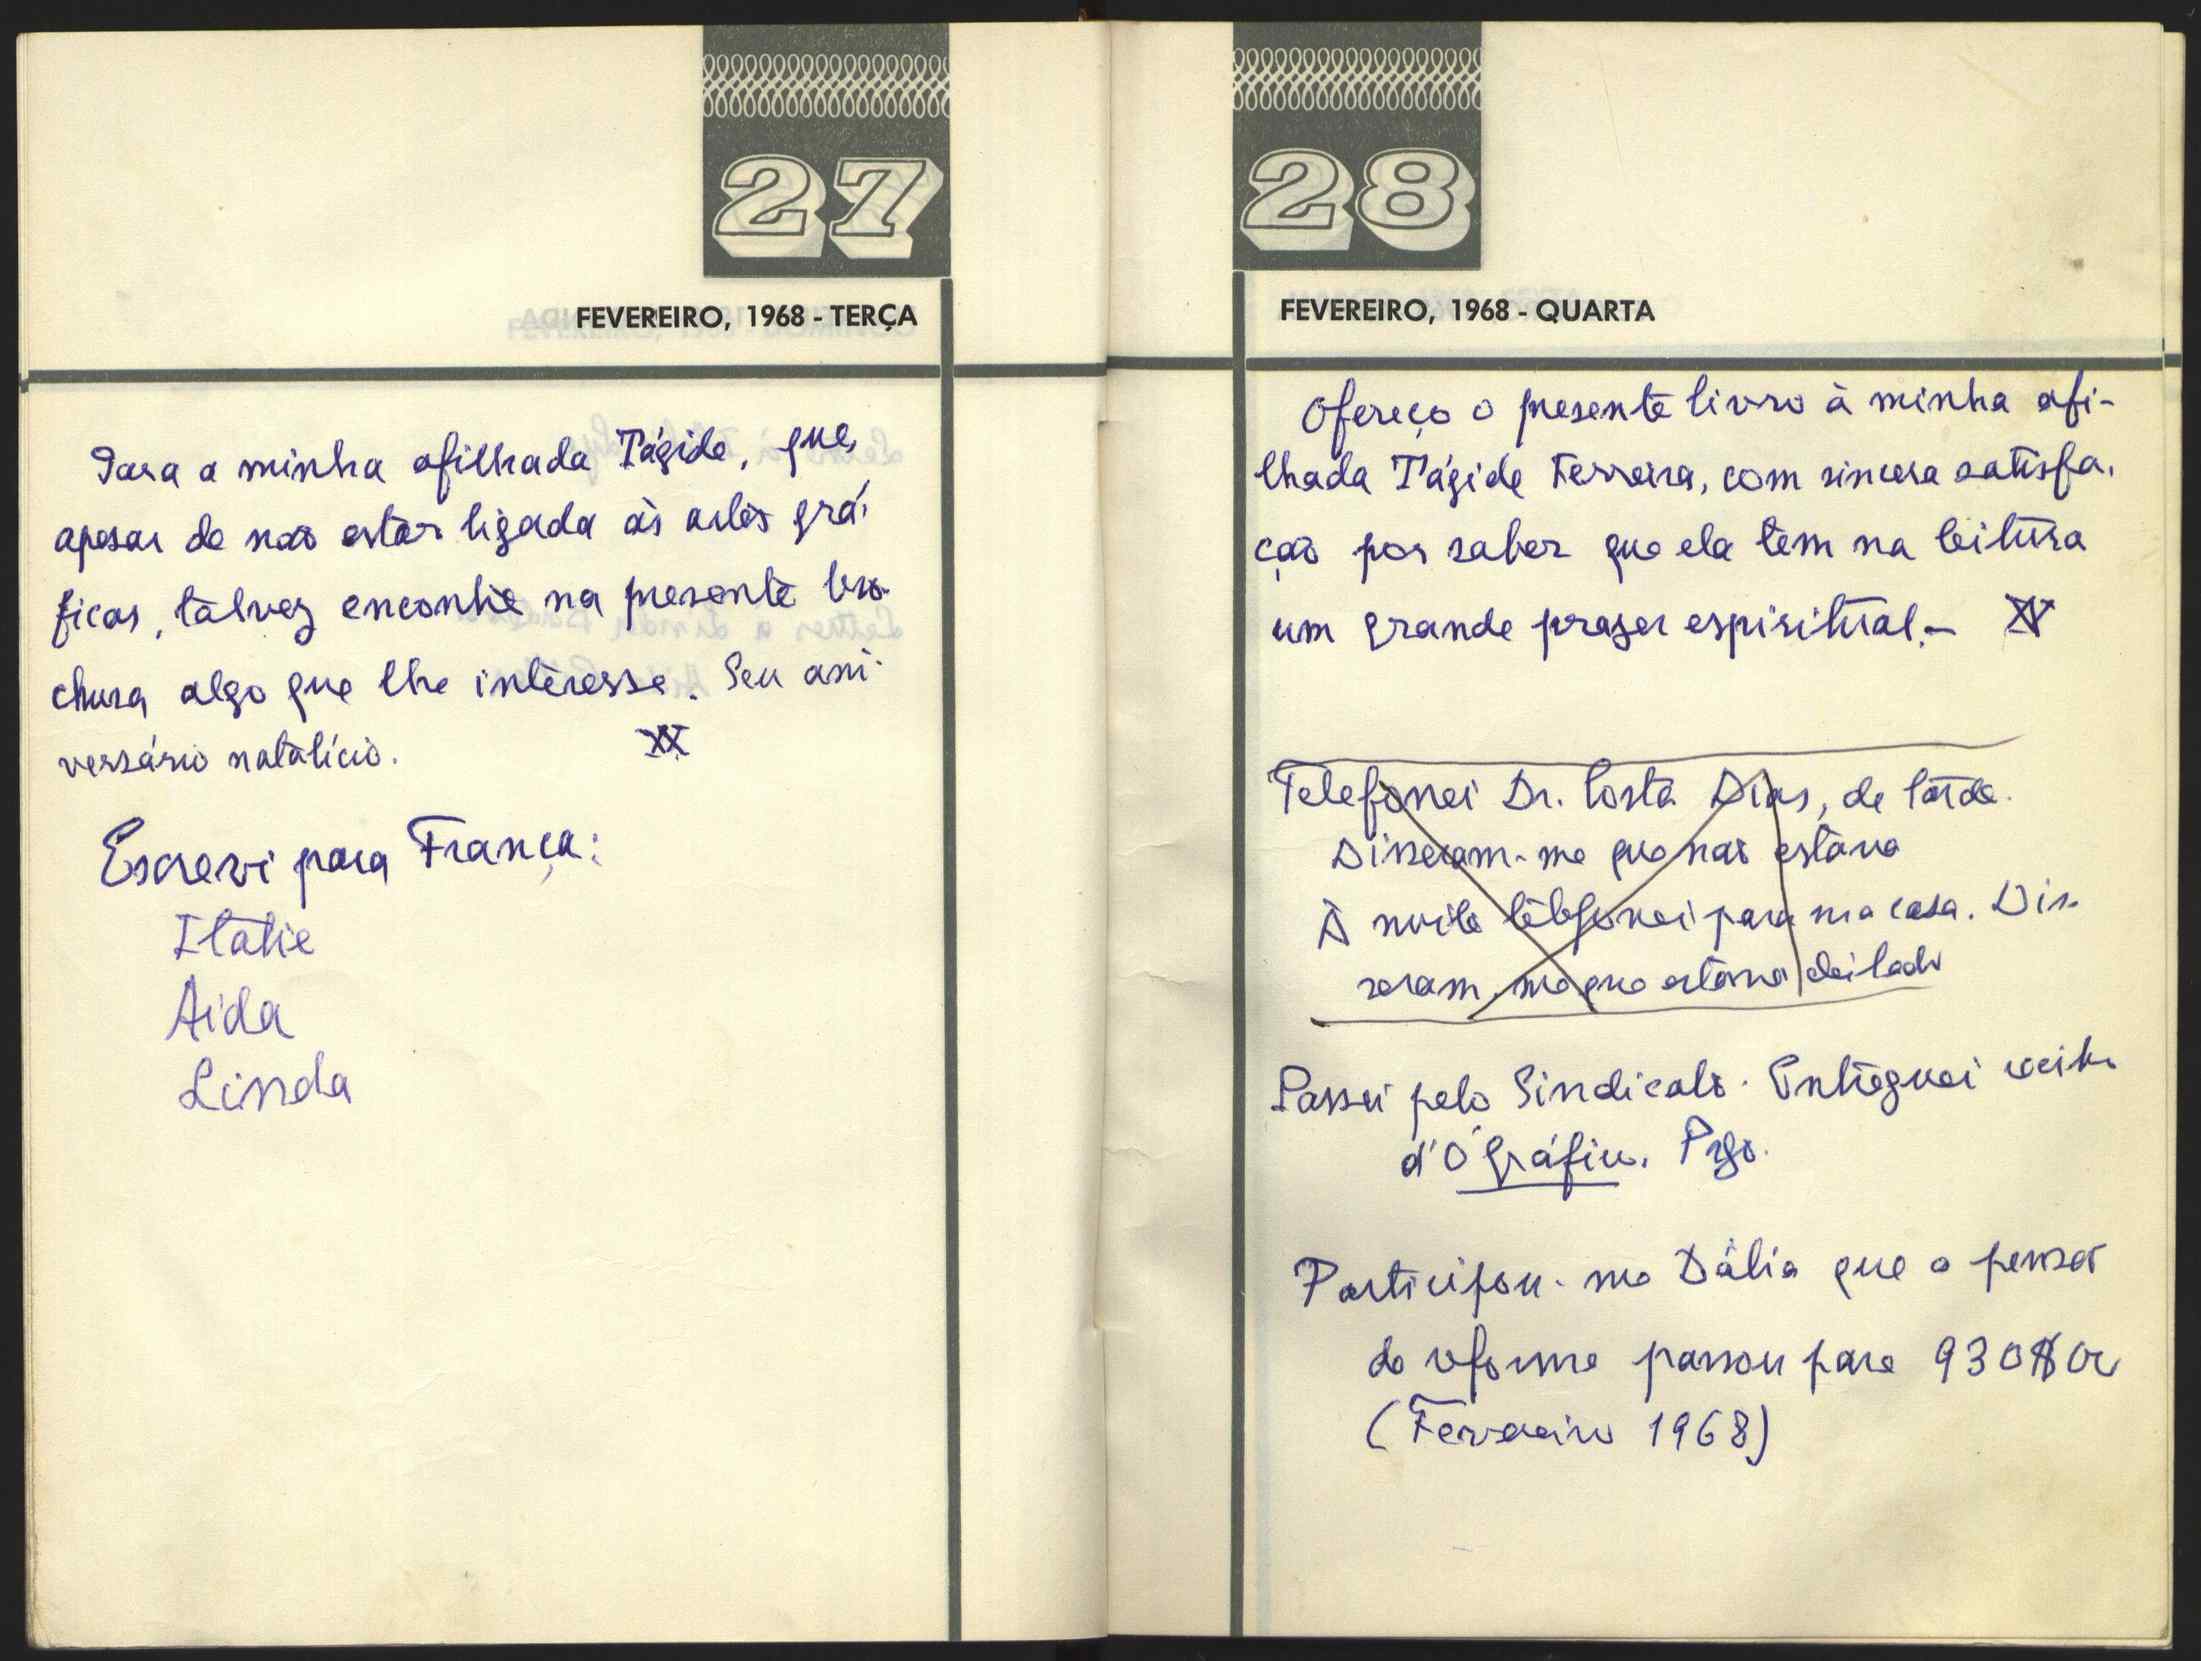 27
FEVEREIRO, 1968 - TERÇA
Para a minha afilhada Tágide, que,
apesar de não estar ligada às artes grá-
ficas, talvez encontre na presente bro-
chura algo que lhe interesse. Seu ani-
versário natalício.
Escrevi para França:
Italie
Aida
Linda
28
FEVEREIRO, 1968 - QUARTA
Ofereço o presente livro à minha afi-
lhada Tágide Ferreira, com sincera satisfa-
ção por saber que ela tem na leitura
um grande prazer espiritual.-
Telefonei Dr. Costa Dias, de tarde.
Disseram-me que não estava
À noite telefonei para sua casa. Dis-
seram-me que estava deitado
Passei pelo Sindicato. Entreguei
d'O Gráfico.
Participou-me Dália que a pensão
de reforma passou para 930$00
(Fevereiro 1968)